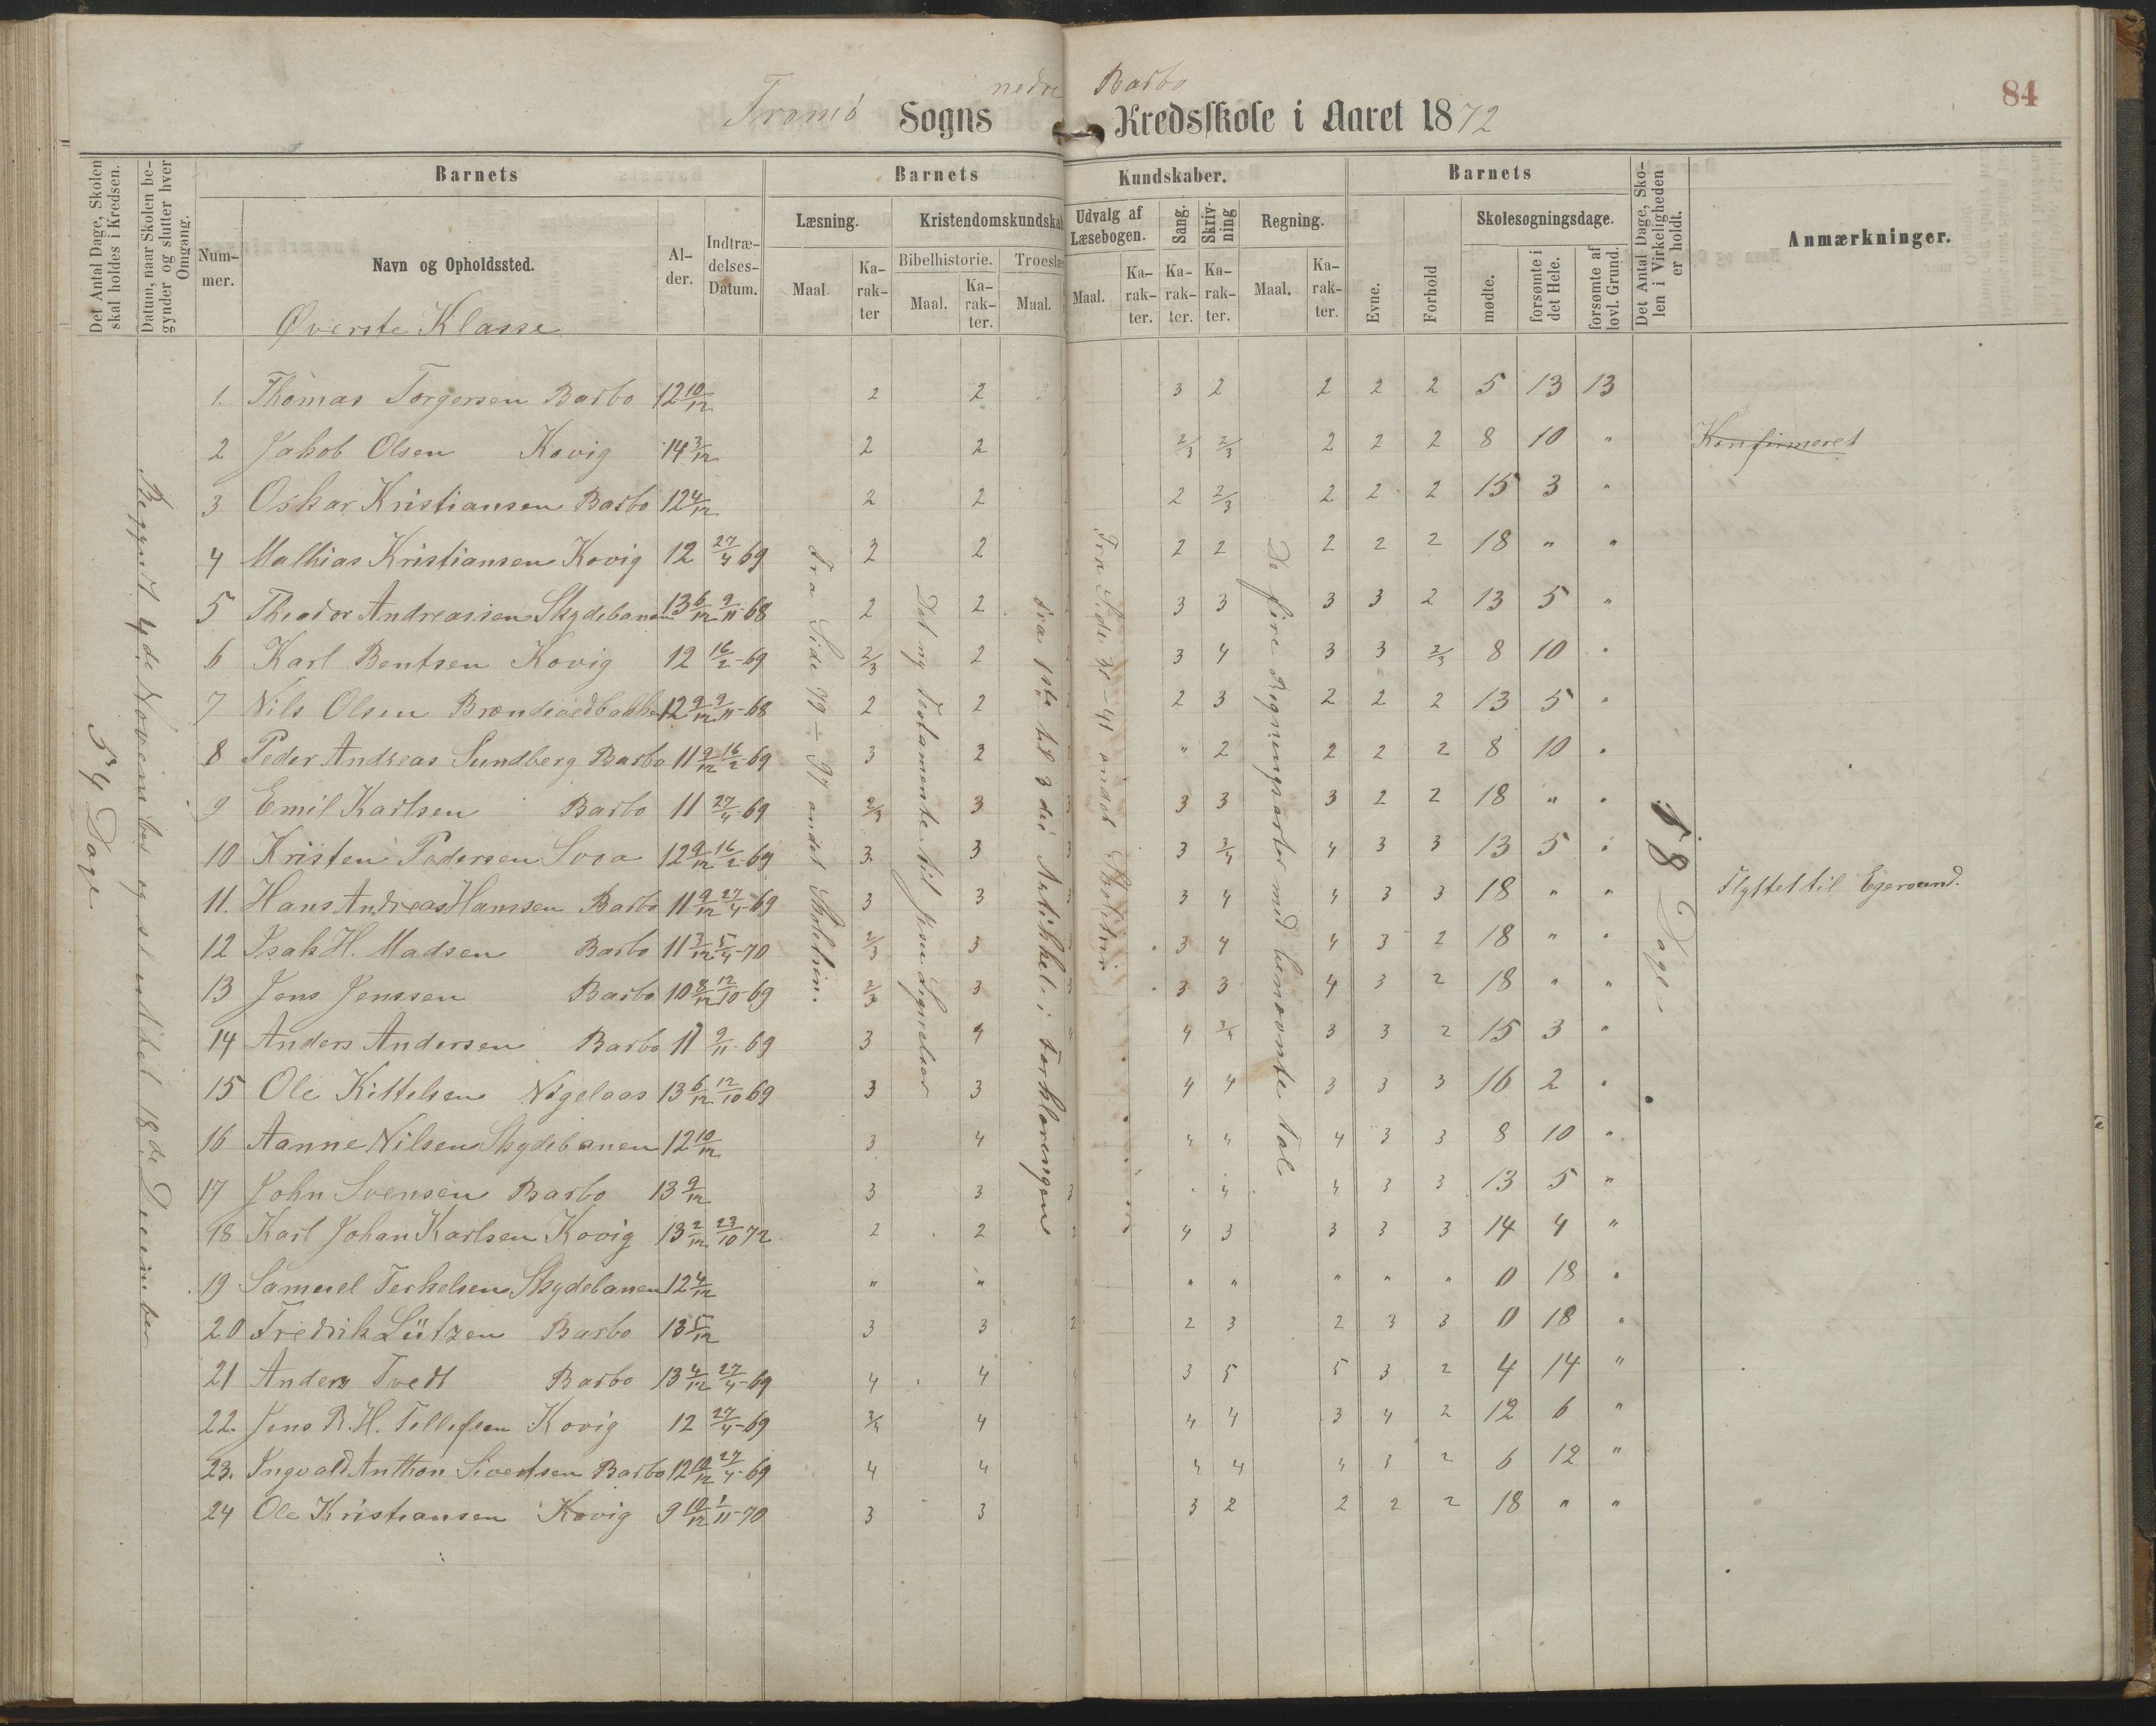 84
Tromø Sogns nedre Barbo Kredsskole i Aaret 1872
Det Antal Dage, Skolen skal holdes i Kredsen.
Datum, naar Skolen begynder og slutter hver Omgang.
Barnets
Barnets
Kundskaber.
Barnets
Det Antal Dage, Skolen i Virkeligheden er holdt.
Anmærkninger.
Nummer.
Navn og Opholdssted.
Alder.
Indtrædelses-Datum.
Læsning.
Kristendomskundskab
Udvalg af Læsebogen.
Sang.
Skrivning
Regning.
Evne.
Forhold
Skolesøgningsdage.
Bibelhistorie.
Troeslæ
Maal.
Karakter
Maal.
Karakter.
Maal.
Maal.
Karakter.
Karakter.
Karakter.
Maal.
Karakter.
mødte.
forsømte i det Hele.
forsømte af lovl. Grund.
Øverste Klasse
1. Thomas Torgersen Barbo 12 10/12 2 2 3 2 2 2 2 5 13 13
2 Jakob Olsen Kovig 14 3/12 2 2 2/3 2/3 2 2 2 8 10 " Konfirmeret
3 Oskar Kristiansen Barbo 12 4/12 2 2 2 2/3 2 2 2 15 3 "
4 Mathias Kristiansen Kovig 12 27/4 69 2 2 2 2 2 2 2 18 " "
5 Theodor Andreassen Skydebanen 13 6/12 9/11-68 2 2 3 3 3 3 2 13 5 "
6 Karl Bentsen Kovig 12 16/2-69 2/3 2 3 4 3 3 2/3 8 10 "
7 Nils Olsen 12 9/12 9/11-68 2 2 2 3 2 2 2 13 5 "
8 Peder Andreas Sundberg Barbo 11 9/12 16/2-69 3 2 " 2 2 2 2 8 10 "
9 Emil Karlsen Barbo 11 27/4-69 2/3 3 3 3 3 2 2 18 " "
10 Kristen Pedersen 12 9/12 16/2-69 3 3 3 3/4 4 3 3 13 5 "
11. Hans Andreas Hansen Barbo 11 9/12 27/4-69 3 3 3 4 4 3 3 18 " " Flyttet til Egersund.
12 Isak H. Madsen Barbo 11 3/12 5/4-70 2/3 3 3 4 4 3 2 18 " "
13 Jens Jenssen Barbo 10 8/12 12/10-69 2/3 3 3 3 4 3 2 18 " "
14 Anders Andersen Barbo 11 9/11-69 3 4 4 3/4 3 3 2 15 3 "
15 Ole Kittelsen 13 6/12 12/10 69 3 3 4 4 3 3 3 16 2 "
16 Aanne Nilsen Skydebanen 12 10/12 3 4 4 4 4 3 3 8 10 "
17 John Svensen Barbo 13 9/12 3 3 3 4 4 3 3 13 5 "
18 Karl Johan Karlsen Kovig 13 2/12 23/10 72 2 2 2 4 3 3 3 3 14 4 "
19 Samuel Terkelsen Skydebanen 12 4/12 " " " " " " " 0 18 "
20 Fredrik Lützen Barbo 13 5/12 3 3 2 2 3 2 3 3 0 18 "
21 Anders Tvedt Barbo 13 4/12 27/4-69 4 4 4 3 5 5 3 2 4 14 "
22. Jens R. H. Tellefsen Kovig 12 27/4-69 3/4 4 4 4 4 3 4 2 12 6 "
23. Ingvald Anthon Sivertsen Barbo 12 10/12 27/4-69 4 4 4 4 4 4 3 2 6 12 "
24 Ole Kristiansen Kovig 9 10/12 1/11-70 3 3 3 3 2 2 2 2 18 " "
54 Dage
Begynt 4de November og sluttet 18de December
Fra Side 79 – 97 andet Skoletrin.
Det ny Testamente til Jesu Lignelser
Fra 1ste til 3die Artikkel i Forklaringen
Fra Side – 41 andet Skoletrin
De fire Regningsarter med benævnte Tal
58 Dage.